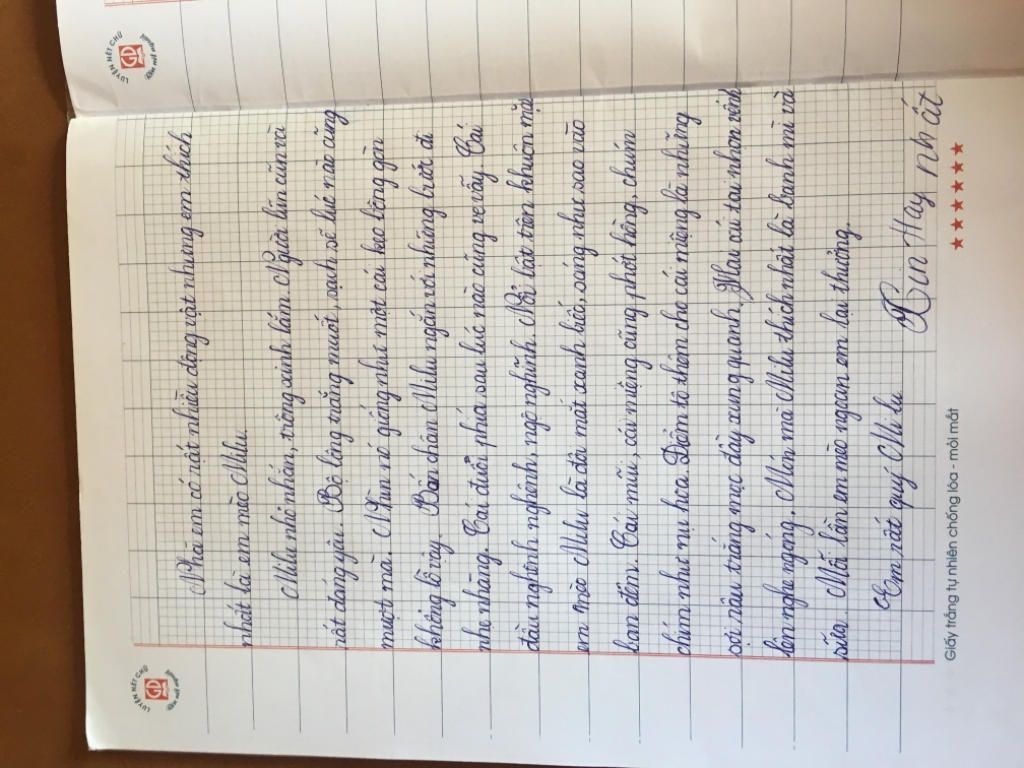 LUYỆN NÉT CHỮ
GD
Rèn nết người
LUYỆN NÉT CHỮ
GD
Rèn nết người
Nhà em có rất nhiều động vật nhưng em thích
nhất là em mèo Milu.
Milu nhỏ nhắn, trông xinh lắm. Người lũn cũn và
rất đáng yêu. Bộ lông trắng muốt, sạch sẽ lúc nào cũng
mượt mà. Nhìn nó giống như một cái kẹo bông gòn
khổng lồ vậy. Bốn chân Milu ngắn với những bước đi
nhẹ nhàng. Cái đuôi phía sau lúc nào cũng ve vẩy. Cái
đầu nghênh nghênh, ngộ nghĩnh. Nổi bật trên khuôn mặt
em mèo Milu là đôi mắt xanh biếc, sáng như sao vào
ban đêm. Cái mũi, cái miệng cũng phớt hồng, chúm
chím như nụ hoa. Điểm tô thêm cho cái miệng là những
sợi râu trắng mọc đầy xung quanh. Hai cái tai nhọn vểnh
lên nghe ngóng. Món mà Milu thích nhất là banh mì và
sữa. Mỗi lần em mèo ngoan em lại thưởng.
Em rất quý Mi lu
Xin Hay nhất
Giấy trắng tự nhiên chống lóa - mỏi mắt
★★★★★★